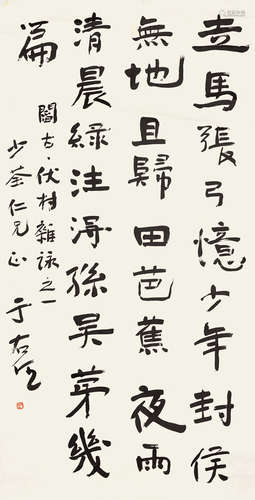 走馬張弓憶少年封侯
無地且歸田芭蕉夜雨
清晨緑注得孫吳第幾
篇
古伏村雜詠之一
少荃仁兄正
于右任